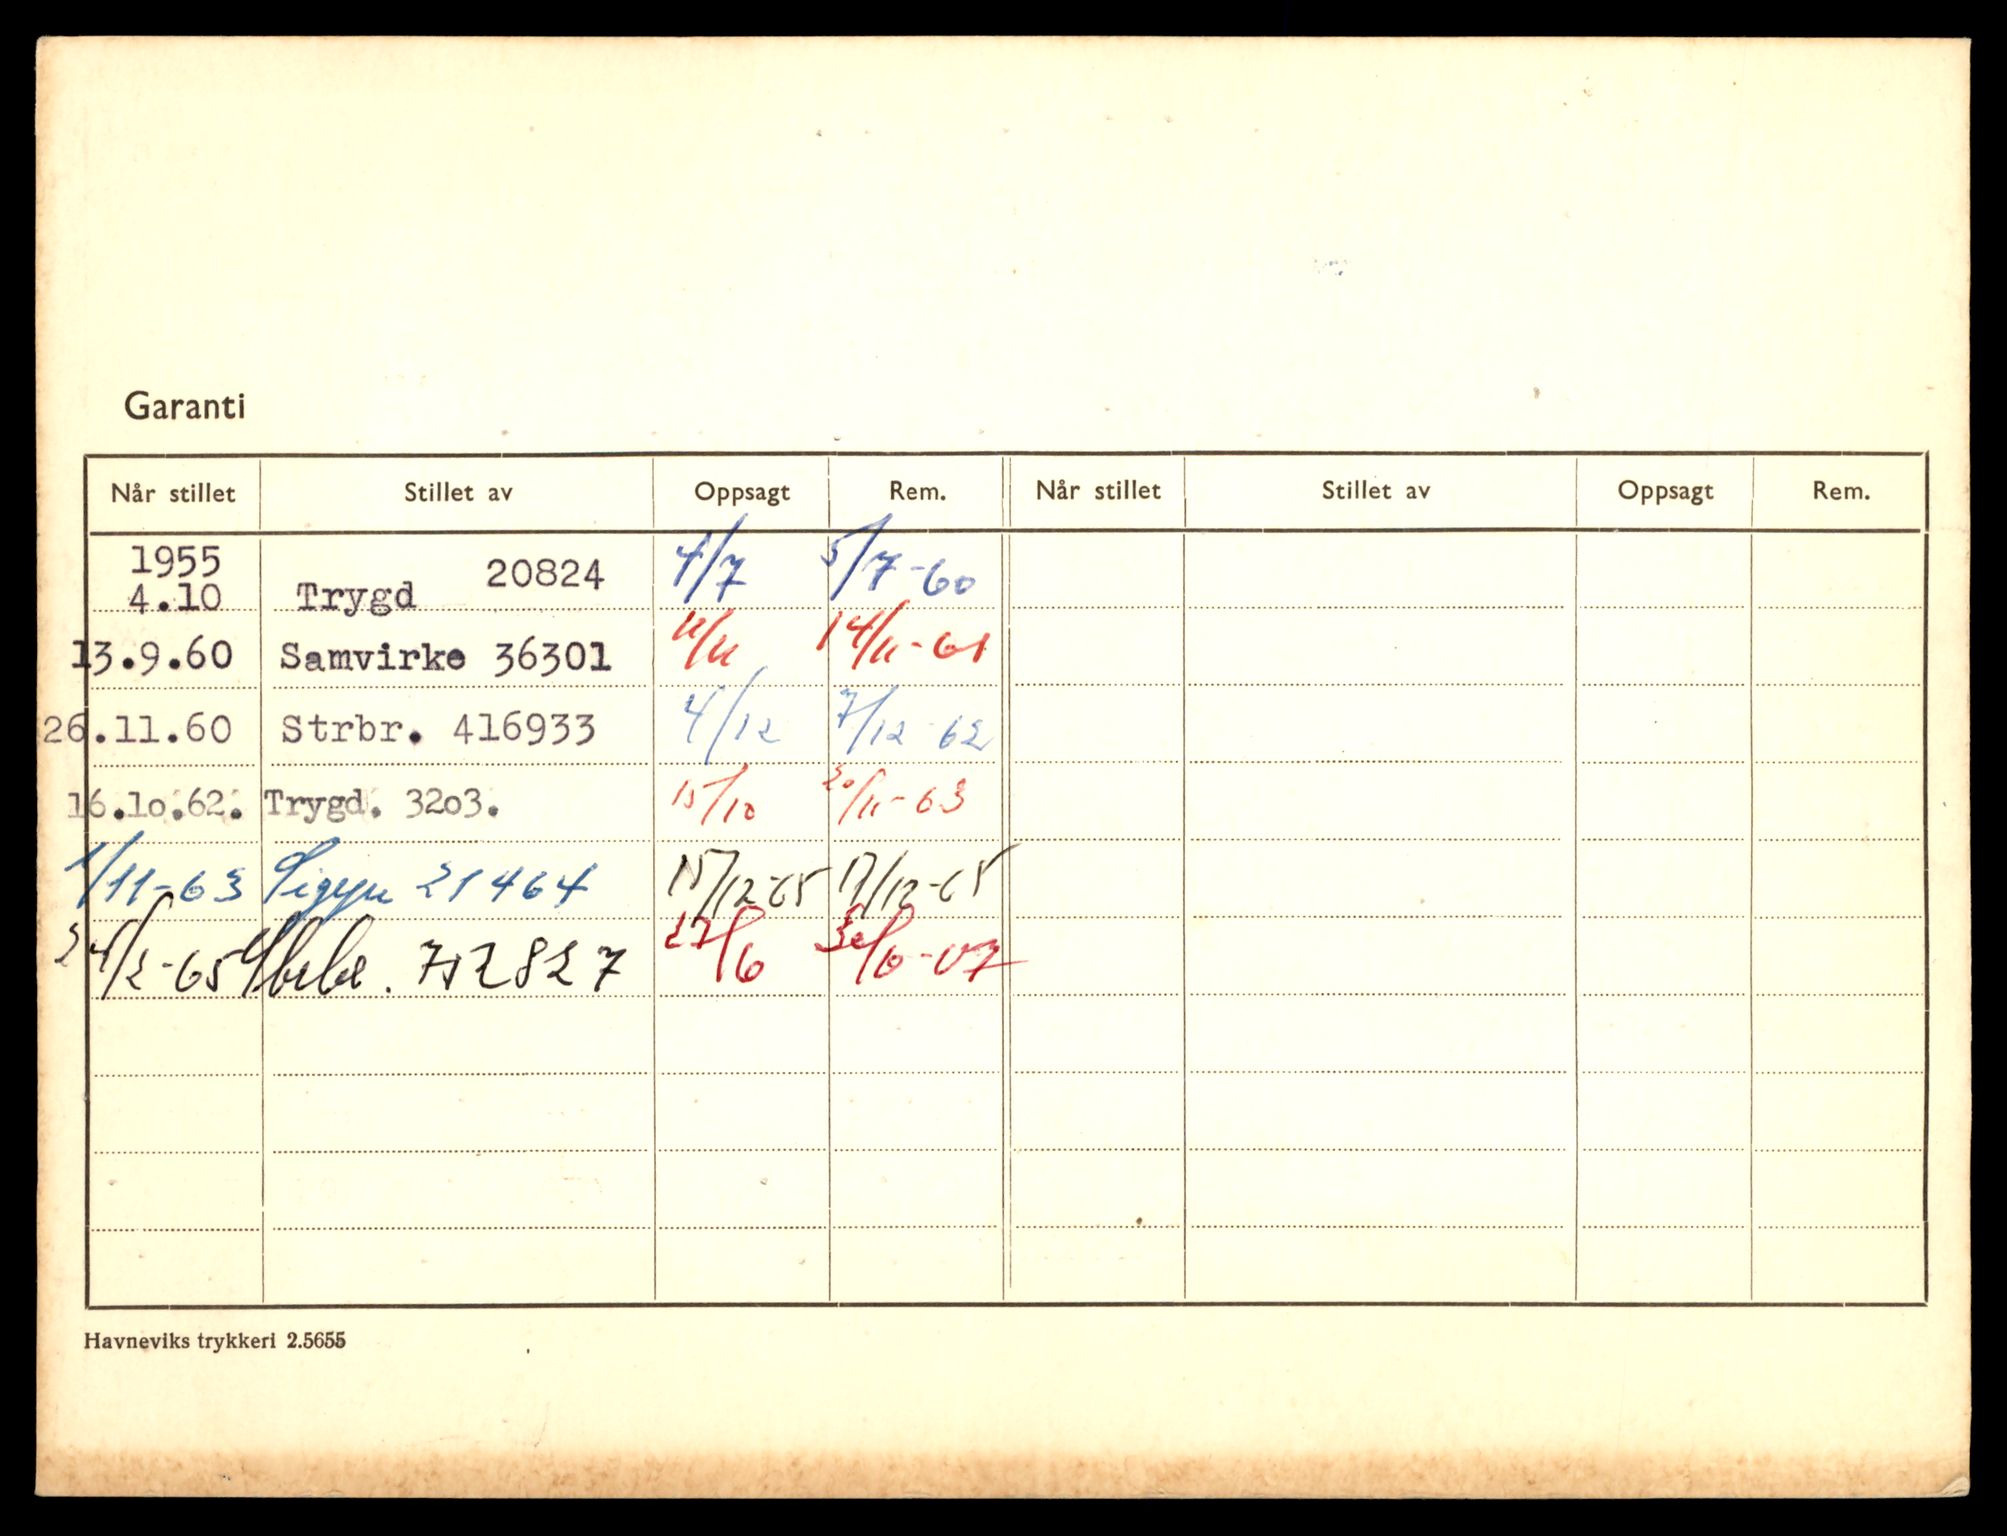 Garanti
Når stillet Stillet av Oppsagt Rem. Når stillet Stillet av Oppsagt Rem.
1955
4.10 Trygd 20824 4/7 5/7-60
13.9.60 Samvirke 36301 11/11 14/11-61
26.11.60 Strbr. 416933 4/12 7/12-62
16.10.62. Trygd. 3203. 15/10 20/11-63
1/11-63 Sigyn 21464 15/12-65 17/12-65
24/2-65 27/6 30/6-67
Havneviks trykkeri 2.5655